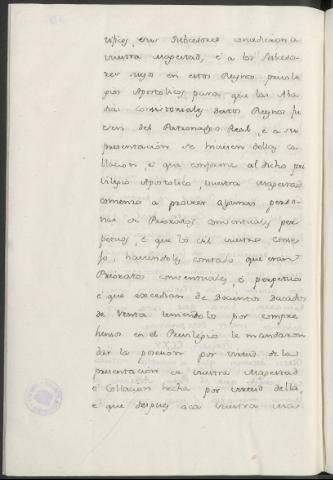 tifices, e sus Subcesores concedieron a
vuestra Magestad, e a los Subceso-
res suyos en estos Reynos previle-
gios Apostolicos, para que las Aba-
dias consistoriales destos Reynos fu
esen del Patronazgo Real, e a su
presentación se hiciesen dellas co-
llacion, e que conforme al dicho pri
vilegio Apostolico vuestra Magestad
comenzo a proveer algunas perso-
nas de Prioratos conventuales per-
petuos, e que los del vuestro conse-
jo haviendoles constado que eran
Prioratos conventuales, e perpetuos
e que excedian de Docientos Ducados
de renta teniendolo por compre
henso en el Previlegio le mandaron
dar la posesion por virtud de la
presentacion de vuestra Magestad
e Collacion hecha por virtud della,
e que despues aca vuestra Ma